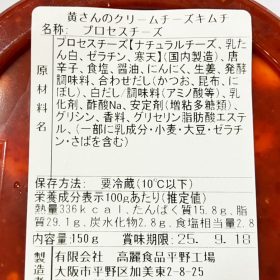 黄さんのクリームチーズキムチ
名称: プロセスチーズ
原材料名
プロセスチーズ【ナチュラルチーズ、乳たん
白、ゼラチン、寒天】(国内製造)、唐
辛子、食塩、醤油、にんにく、生姜、発酵
調味料、合わせだし(かつお、昆布、に
ぼし)、白だし/調味料(アミノ酸等)、乳
化剤、酢酸Na、安定剤(増粘多糖類)、
グリシン、香料、グリセリン脂肪酸エステ
ル、(一部に乳成分・小麦・大豆・ゼラチ
ン・さばを含む)
保存方法: 要冷蔵(10℃以下)
栄養成分表示100gあたり(推定値)
熱量336kcal、たんぱく質15.8g、脂
質29.1g、炭水化物2.8g、食塩相当量2.8
内容量:150g 賞味期限:25. 9.18
製造者
有限会社 高麗食品平野工場
大阪市平野区加美東2-8-25